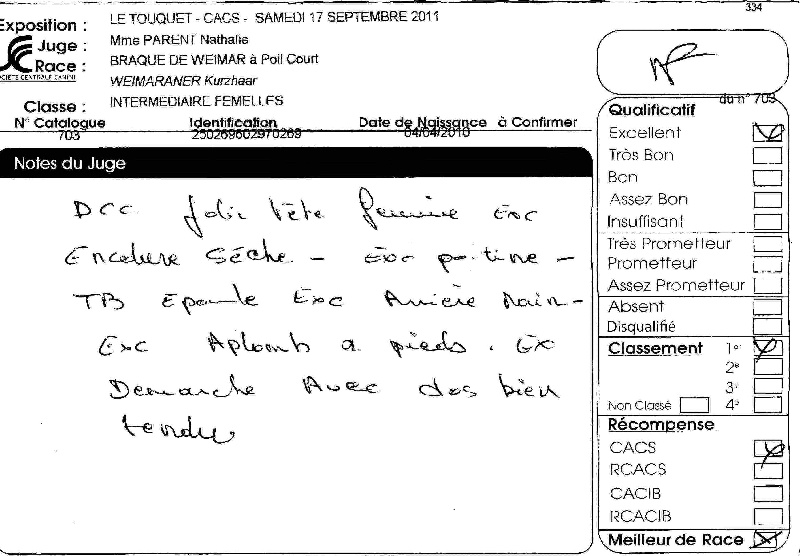 334
Exposition : LE TOUQUET - CACS - SAMEDI 17 SEPTEMBRE 2011
Juge : Mme PARENT Nathalie
Race : BRAQUE DE WEIMAR à Poil Court
SOCIETE CENTRALE CANINE
WEIMARANER Kurzhaar
Classe : INTERMEDIAIRE FEMELLES
N° Catalogue Identification Date de Naissance à Confirmer
703 250269602970269 04/04/2010
Notes du Juge
DCC Jolie tête femine Exc
Encolure Sèche - Exc poitrine -
TB Epaule Exc Arrière Main -
Exc Aplomb a pieds. Ex
Demarche Avec dos bien
tendu
du n° 703
Qualificatif
Excellent
Très Bon
Bon
Assez Bon
Insuffisant
Très Prometteur
Prometteur
Assez Prometteur
Absent
Disqualifié
Classement 1°
2°
3°
Non Classé 4°
Récompense
CACS
RCACS
CACIB
RCACIB
Meilleur de Race